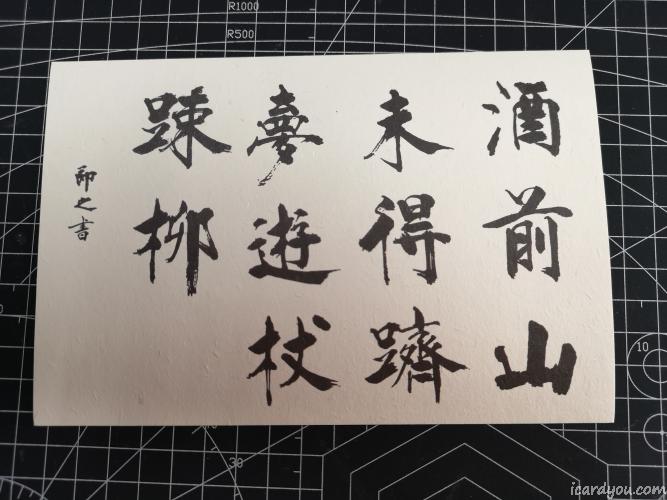 酒前山
未得躋
夢遊杖
踈柳
即之書
R1000
R500
10
30
icardyou.com